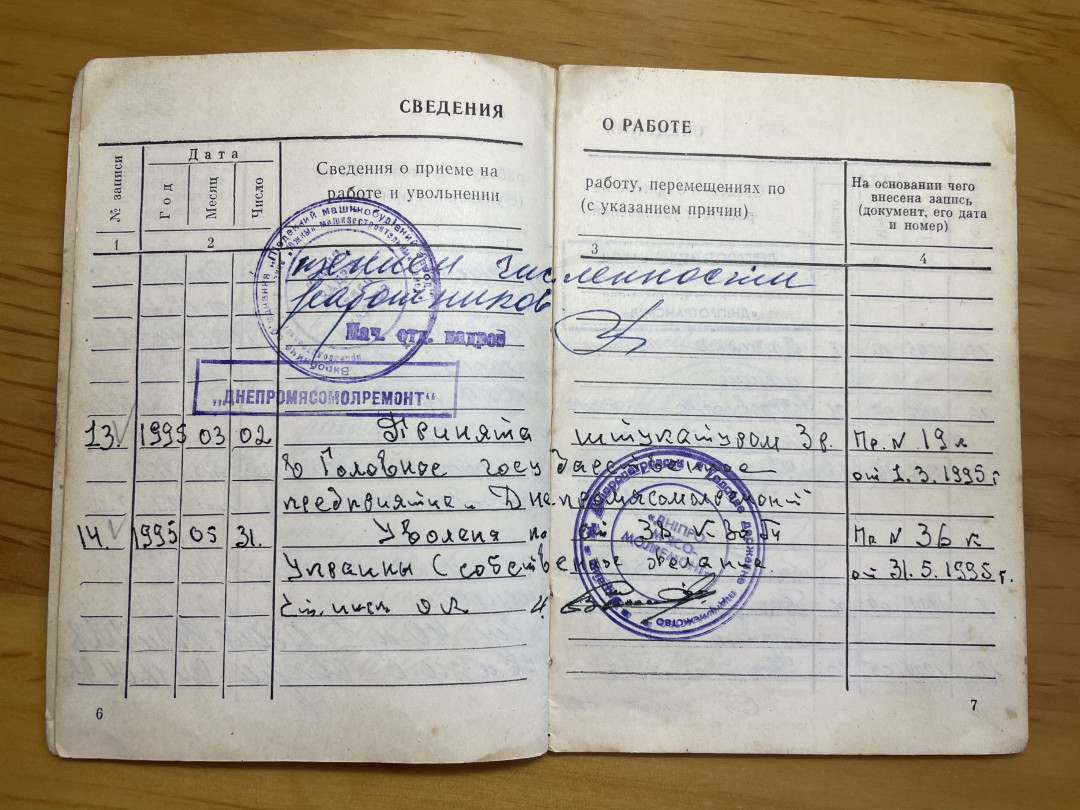 СВЕДЕНИЯ
О РАБОТЕ
№ записи
Дата
Год
Месяц
Число
Сведения о приеме на
работе и увольнении
работу, перемещениях по
(с указанием причин)
На основании чего
внесена запись
(документ, его дата
и номер)
1 2 3 4
щением численности
работников
Нач. отд. кадров
„ДНЕПРОМЯСОМОЛРЕМОНТ“
13. 1995 03 02 Принята штукатуром 3 р. Пр. N 19 л
в Головное государственное от 1.3.1995 г
предприятие Днепромясомолремонт
14. 1995 05 31. Уволена по ст 38 КЗОТ Пр N 36 к
Украины (собственное желание. от 31.5.1995 г.
«ДНІПРО
МЯСО-
МОЛРЕМОНТ»
6
7